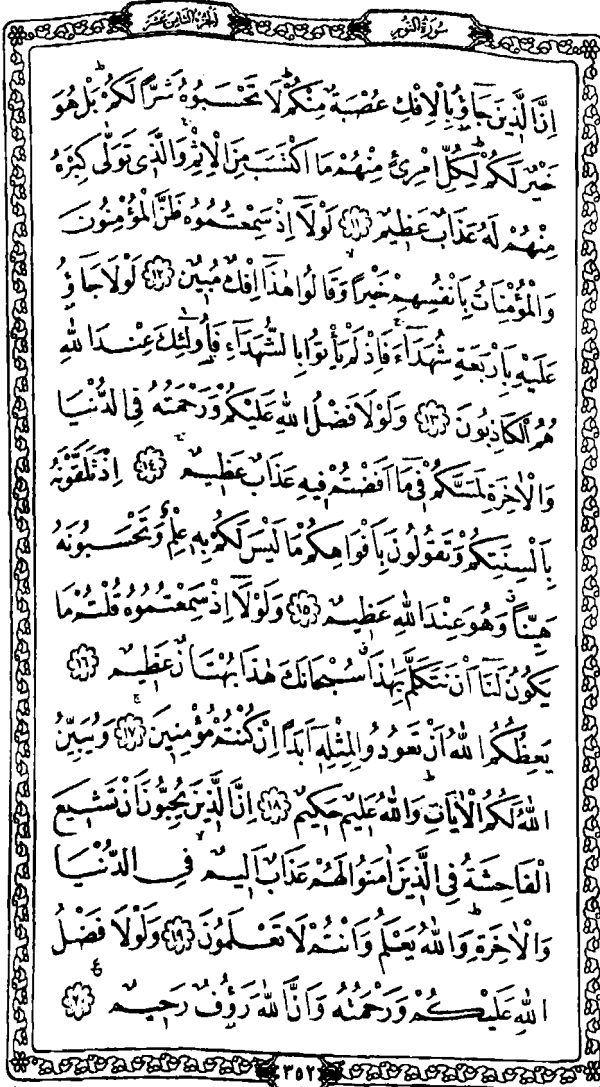 سُورَةُ النُّورِ
اَلْجُزْءُ الثَّامِنَ عَشَرَ
اِنَّ الَّذ۪ينَ جَٓاؤُ۫ بِالْاِفْكِ عُصْبَةٌ مِنْكُمْۜ لَا تَحْسَبُوهُ شَرًّا لَكُمْۜ بَلْ هُوَ
خَيْرٌ لَكُمْۜ لِكُلِّ امْرِئٍ مِنْهُمْ مَا اكْتَسَبَ مِنَ الْاِثْمِۚ وَالَّذ۪ي تَوَلّٰى كِبْرَهُ
مِنْهُمْ لَهُ عَذَابٌ عَظ۪يمٌ ﴿١١﴾ لَوْلَٓا اِذْ سَمِعْتُمُوهُ ظَنَّ الْمُؤْمِنُونَ
وَالْمُؤْمِنَاتُ بِاَنْفُسِهِمْ خَيْرًاۙ وَقَالُوا هٰذَٓا اِفْكٌ مُب۪ينٌ ﴿١٢﴾ لَوْلَا جَٓاؤُ۫
عَلَيْهِ بِاَرْبَعَةِ شُهَدَٓاءَۚ فَاِذْ لَمْ يَأْتُوا بِالشُّهَدَٓاءِ فَاُو۬لٰٓئِكَ عِنْدَ اللّٰهِ
هُمُ الْكَاذِبُونَ ﴿١٣﴾ وَلَوْلَا فَضْلُ اللّٰهِ عَلَيْكُمْ وَرَحْمَتُهُ فِي الدُّنْيَا
وَالْاٰخِرَةِ لَمَسَّكُمْ ف۪ي مَٓا اَفَضْتُمْ ف۪يهِ عَذَابٌ عَظ۪يمٌۚ ﴿١٤﴾ اِذْ تَلَقَّوْنَهُ
بِاَلْسِنَتِكُمْ وَتَقُولُونَ بِاَفْوَاهِكُمْ مَا لَيْسَ لَكُمْ بِه۪ عِلْمٌ وَتَحْسَبُونَهُ
هَيِّنًاۗ وَهُوَ عِنْدَ اللّٰهِ عَظ۪يمٌ ﴿١٥﴾ وَلَوْلَٓا اِذْ سَمِعْتُمُوهُ قُلْتُمْ مَا
يَكُونُ لَنَٓا اَنْ نَتَكَلَّمَ بِهٰذَاۗ سُبْحَانَكَ هٰذَا بُهْتَانٌ عَظ۪يمٌ ﴿١٦﴾
يَعِظُكُمُ اللّٰهُ اَنْ تَعُودُوا لِمِثْلِه۪ٓ اَبَدًا اِنْ كُنْتُمْ مُؤْمِن۪ينَۚ ﴿١٧﴾ وَيُبَيِّنُ
اللّٰهُ لَكُمُ الْاٰيَاتِۜ وَاللّٰهُ عَل۪يمٌ حَك۪يمٌ ﴿١٨﴾ اِنَّ الَّذ۪ينَ يُحِبُّونَ اَنْ تَش۪يعَ
الْفَاحِشَةُ فِي الَّذ۪ينَ اٰمَنُوا لَهُمْ عَذَابٌ اَل۪يمٌۙ فِي الدُّنْيَا
وَالْاٰخِرَةِۜ وَاللّٰهُ يَعْلَمُ وَاَنْتُمْ لَا تَعْلَمُونَ ﴿١٩﴾ وَلَوْلَا فَضْلُ
اللّٰهِ عَلَيْكُمْ وَرَحْمَتُهُ وَاَنَّ اللّٰهَ رَؤُ۫فٌ رَح۪يمٌ۟ ﴿٢٠﴾
٣٥٢